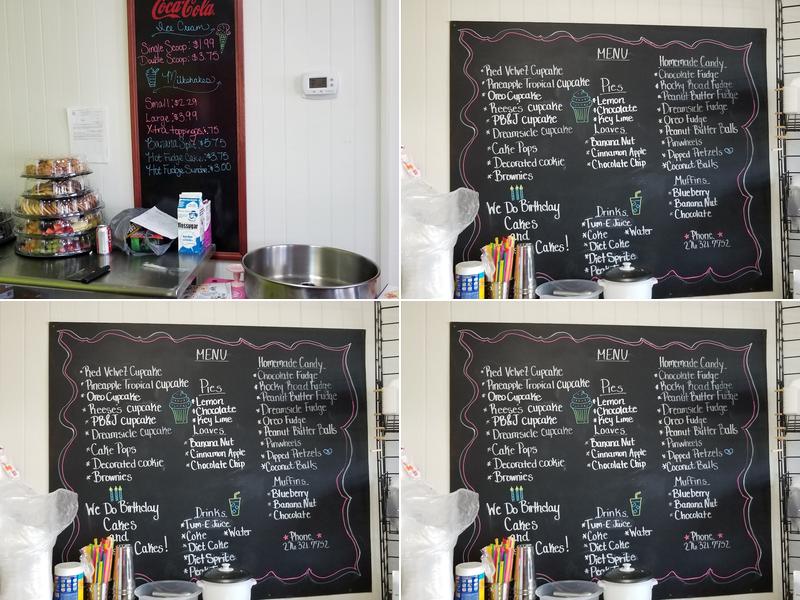 Coca-Cola
Ice Cream
Single Scoop: $1.99
Double Scoop: $3.75
Milkshakes
Small: $2.29
Large: $3.99
Xtra toppings $.75
Banana Split $5.75
Hot Fudge Cake $3.75
Hot Fudge Sundae $3.00
MENU
*Red Velvet Cupcake
*Pineapple Tropical Cupcake
*Oreo Cupcake
*Reeses Cupcake
*PB&J Cupcake
*Dreamsicle Cupcake
*Cake Pops
*Decorated cookie
*Brownies
We Do Birthday
Cakes
and
Cakes!
Pies
*Lemon
*Chocolate
*Key Lime
Loaves
*Banana Nut
*Cinnamon Apple
*Chocolate Chip
Drinks
*Tum-E Juice
*Coke *Water
*Diet Coke
*Diet Sprite
Homemade Candy
*Chocolate Fudge
*Rocky Road Fudge
*Peanut Butter Fudge
*Dreamsicle Fudge
*Oreo Fudge
*Peanut Butter Balls
*Pinwheels
*Dipped Pretzels
*Coconut Balls
Muffins
*Blueberry
*Banana Nut
*Chocolate
*Phone*
276.321.7752
MENU
*Red Velvet Cupcake
*Pineapple Tropical Cupcake
*Oreo Cupcake
*Reeses Cupcake
*PB&J Cupcake
*Dreamsicle Cupcake
*Cake Pops
*Decorated cookie
*Brownies
We Do Birthday
Cakes
and
Cakes!
Pies
*Lemon
*Chocolate
*Key Lime
Loaves
*Banana Nut
*Cinnamon Apple
*Chocolate Chip
Drinks
*Tum-E Juice
*Coke *Water
*Diet Coke
*Diet Sprite
Homemade Candy
*Chocolate Fudge
*Rocky Road Fudge
*Peanut Butter Fudge
*Dreamsicle Fudge
*Oreo Fudge
*Peanut Butter Balls
*Pinwheels
*Dipped Pretzels
*Coconut Balls
Muffins
*Blueberry
*Banana Nut
*Chocolate
*Phone*
276.321.7752
MENU
*Red Velvet Cupcake
*Pineapple Tropical Cupcake
*Oreo Cupcake
*Reeses Cupcake
*PB&J Cupcake
*Dreamsicle Cupcake
*Cake Pops
*Decorated cookie
*Brownies
We Do Birthday
Cakes
and
Cakes!
Pies
*Lemon
*Chocolate
*Key Lime
Loaves
*Banana Nut
*Cinnamon Apple
*Chocolate Chip
Drinks
*Tum-E Juice
*Coke *Water
*Diet Coke
*Diet Sprite
Homemade Candy
*Chocolate Fudge
*Rocky Road Fudge
*Peanut Butter Fudge
*Dreamsicle Fudge
*Oreo Fudge
*Peanut Butter Balls
*Pinwheels
*Dipped Pretzels
*Coconut Balls
Muffins
*Blueberry
*Banana Nut
*Chocolate
*Phone*
276.321.7752